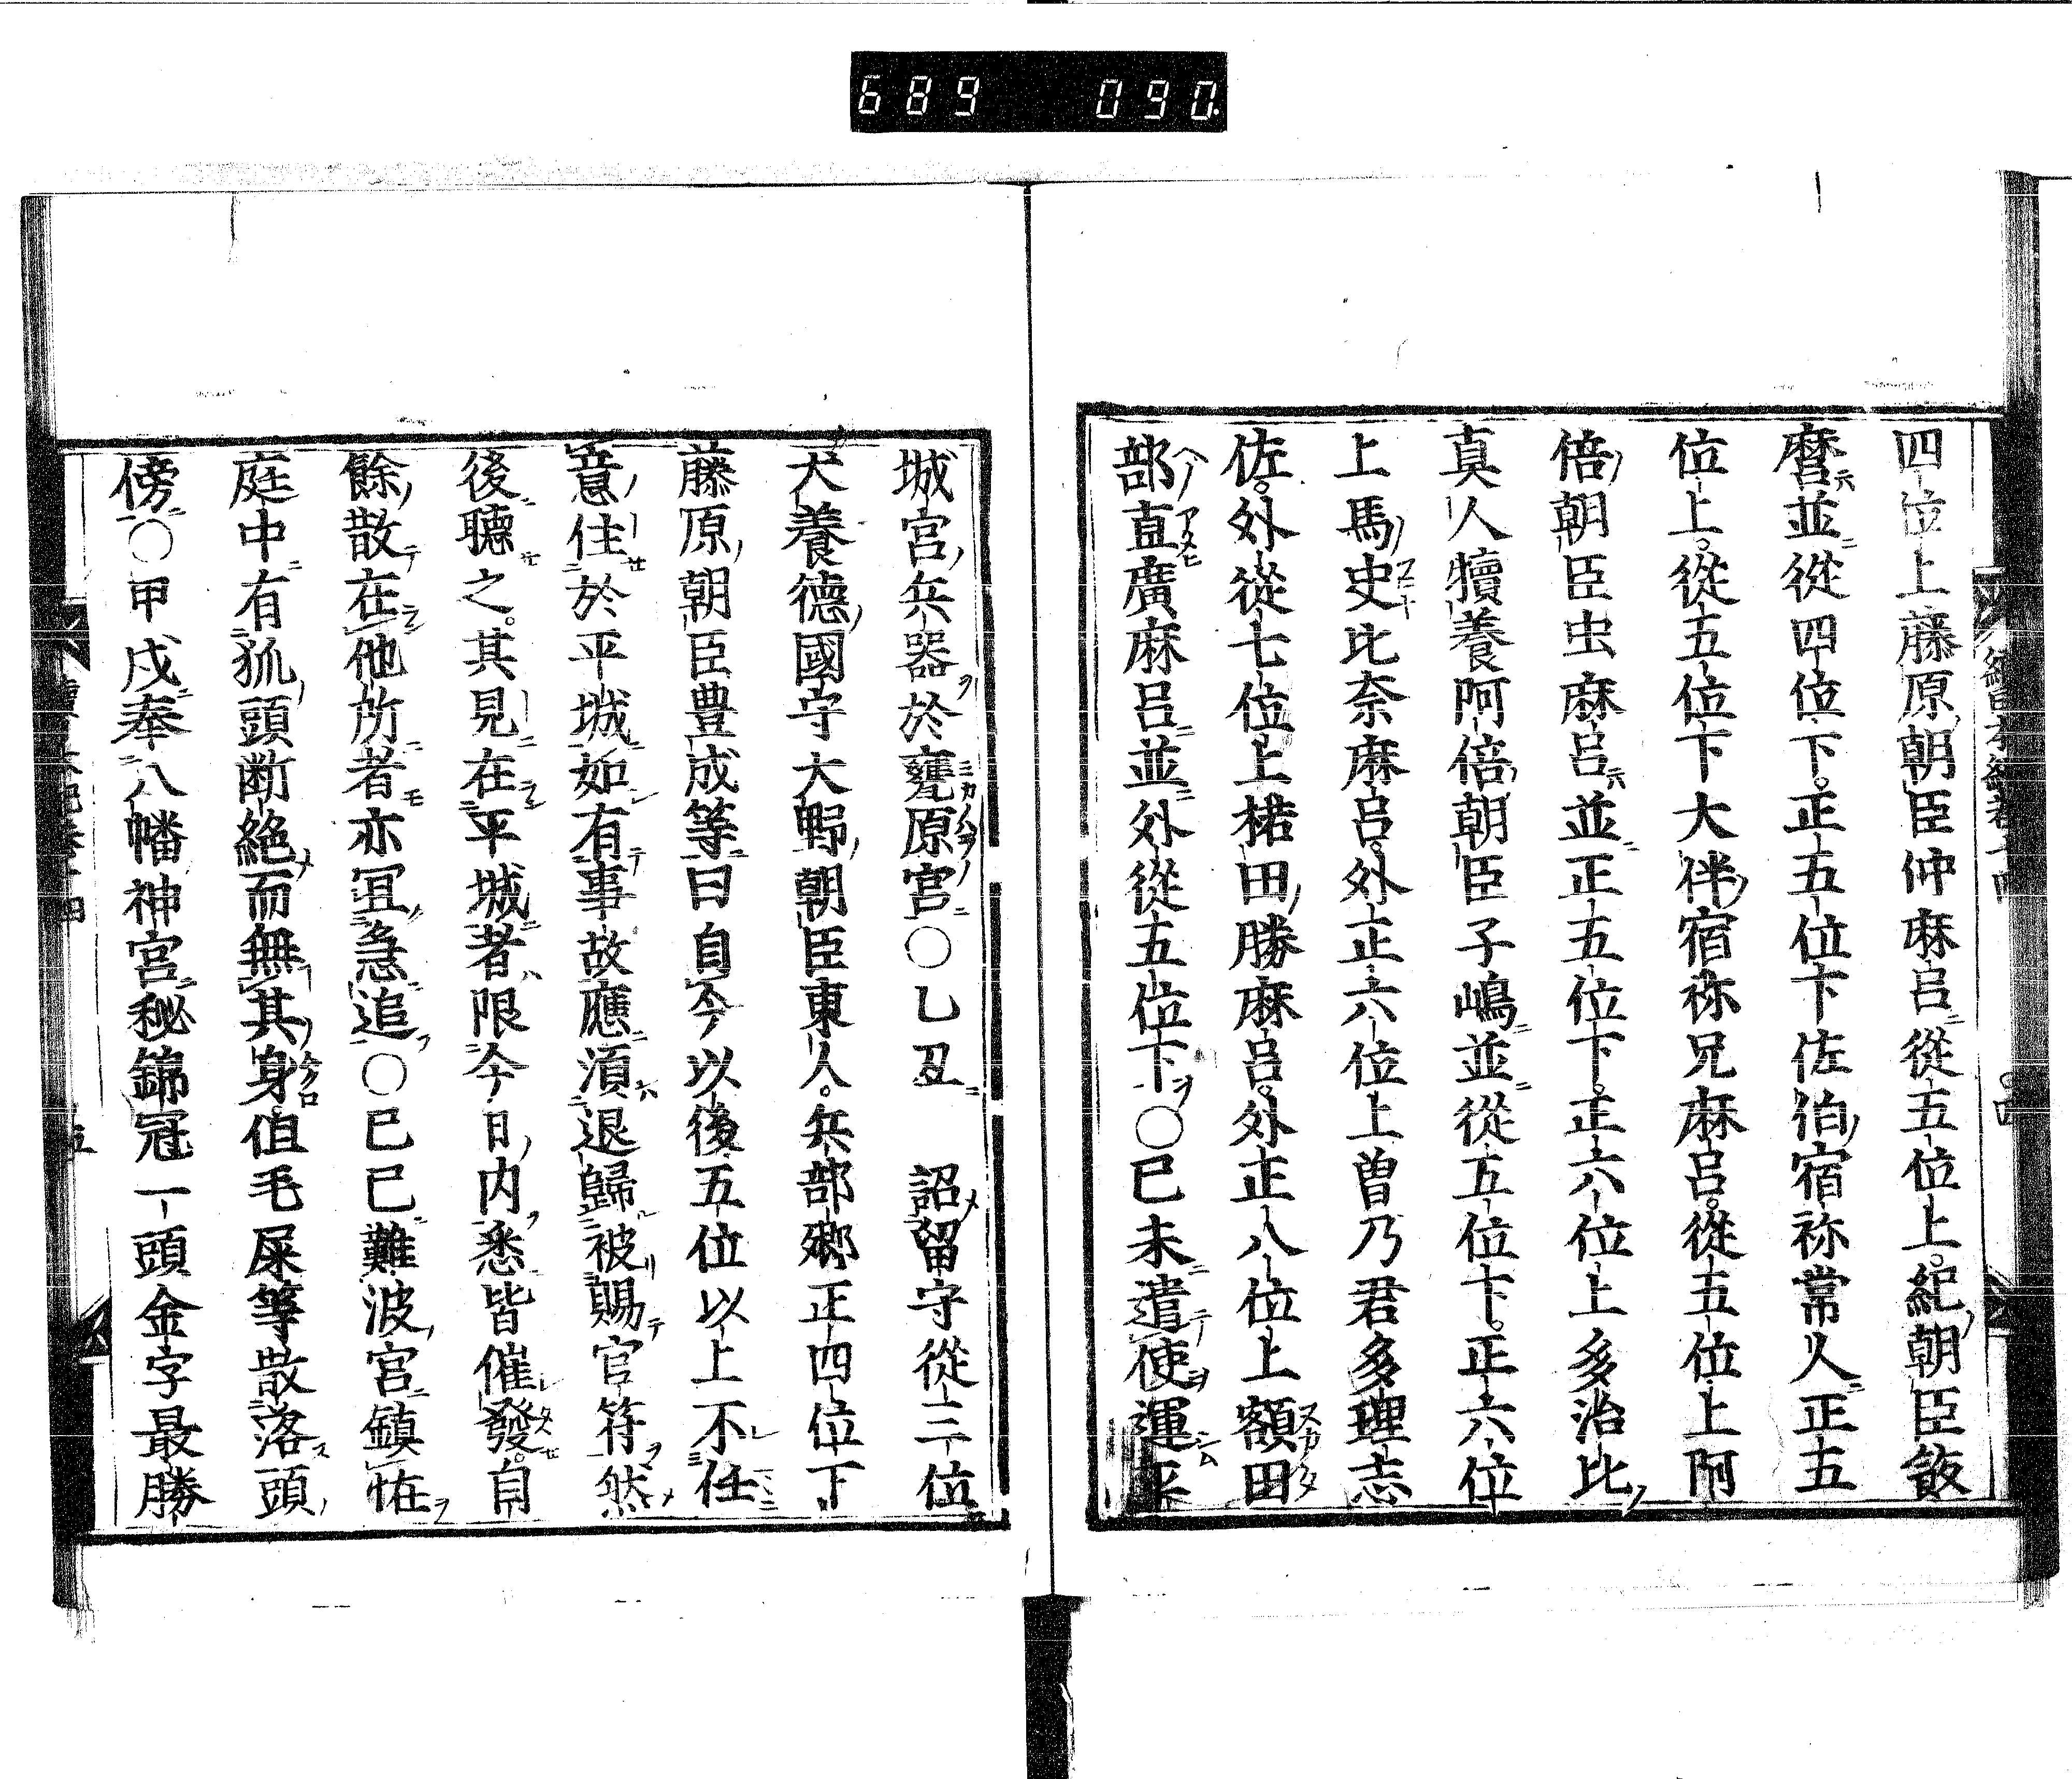 689 090
四位上藤原朝臣仲麻呂從五位上紀朝臣飯
麿並從四位下正五位下佐伯宿祢常人正五
位上從五位下大伴宿祢兄麻呂從五位上阿
倍朝臣虫麻呂並正五位下正六位上多治比
真人犢養阿倍朝臣子嶋並從五位下正六位
上馬史比奈麻呂外正六位上曽乃君多理志
佐外從七位上楉田勝麻呂外正八位上額田
部直廣麻呂並外從五位下〇己未遣使運平
城宮兵器於甕原宮〇乙丑 詔留守從三位
大養德國守大野朝臣東人兵部卿正四位下
藤原朝臣豊成等曰自今以後五位以上不任
意住於平城如有事故應須退歸被賜官符然
後聴之其見在平城者限今日内悉皆催發自
餘散在他所者亦冝急追〇己巳難波宮鎮恠
庭中有狐頭断絶而無其身但毛屎等散落頭
傍〇甲戌奉八幡神宮秘錦冠一頭金字最勝